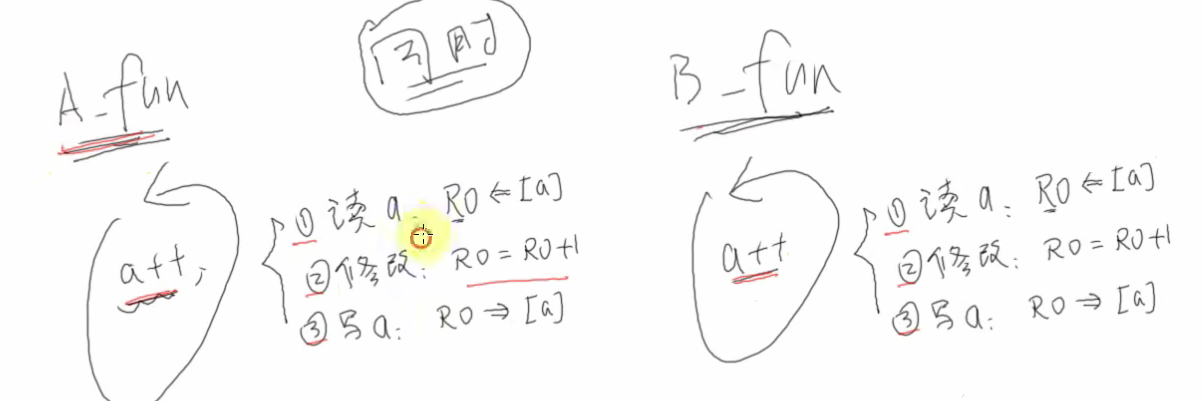 同时
A_fun
a++;
①读a: R0⇐[a]
②修改: R0=R0+1
③写a: R0⇒[a]
B_fun
a++
①读a: R0⇐[a]
②修改: R0=R0+1
③写a: R0⇒[a]